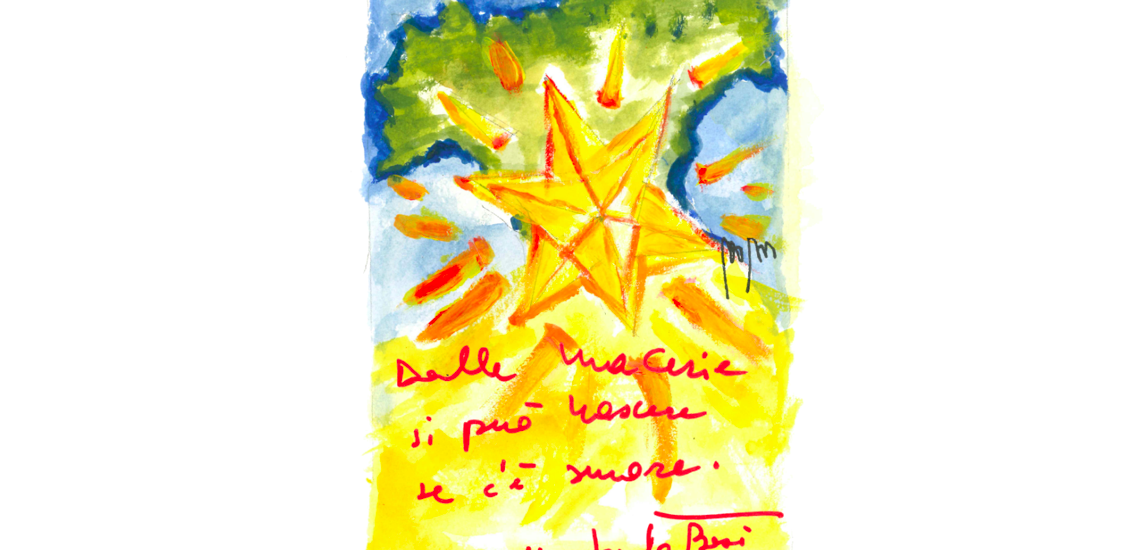 mpm
Dalle macerie
si può nascere
se c'è amore.